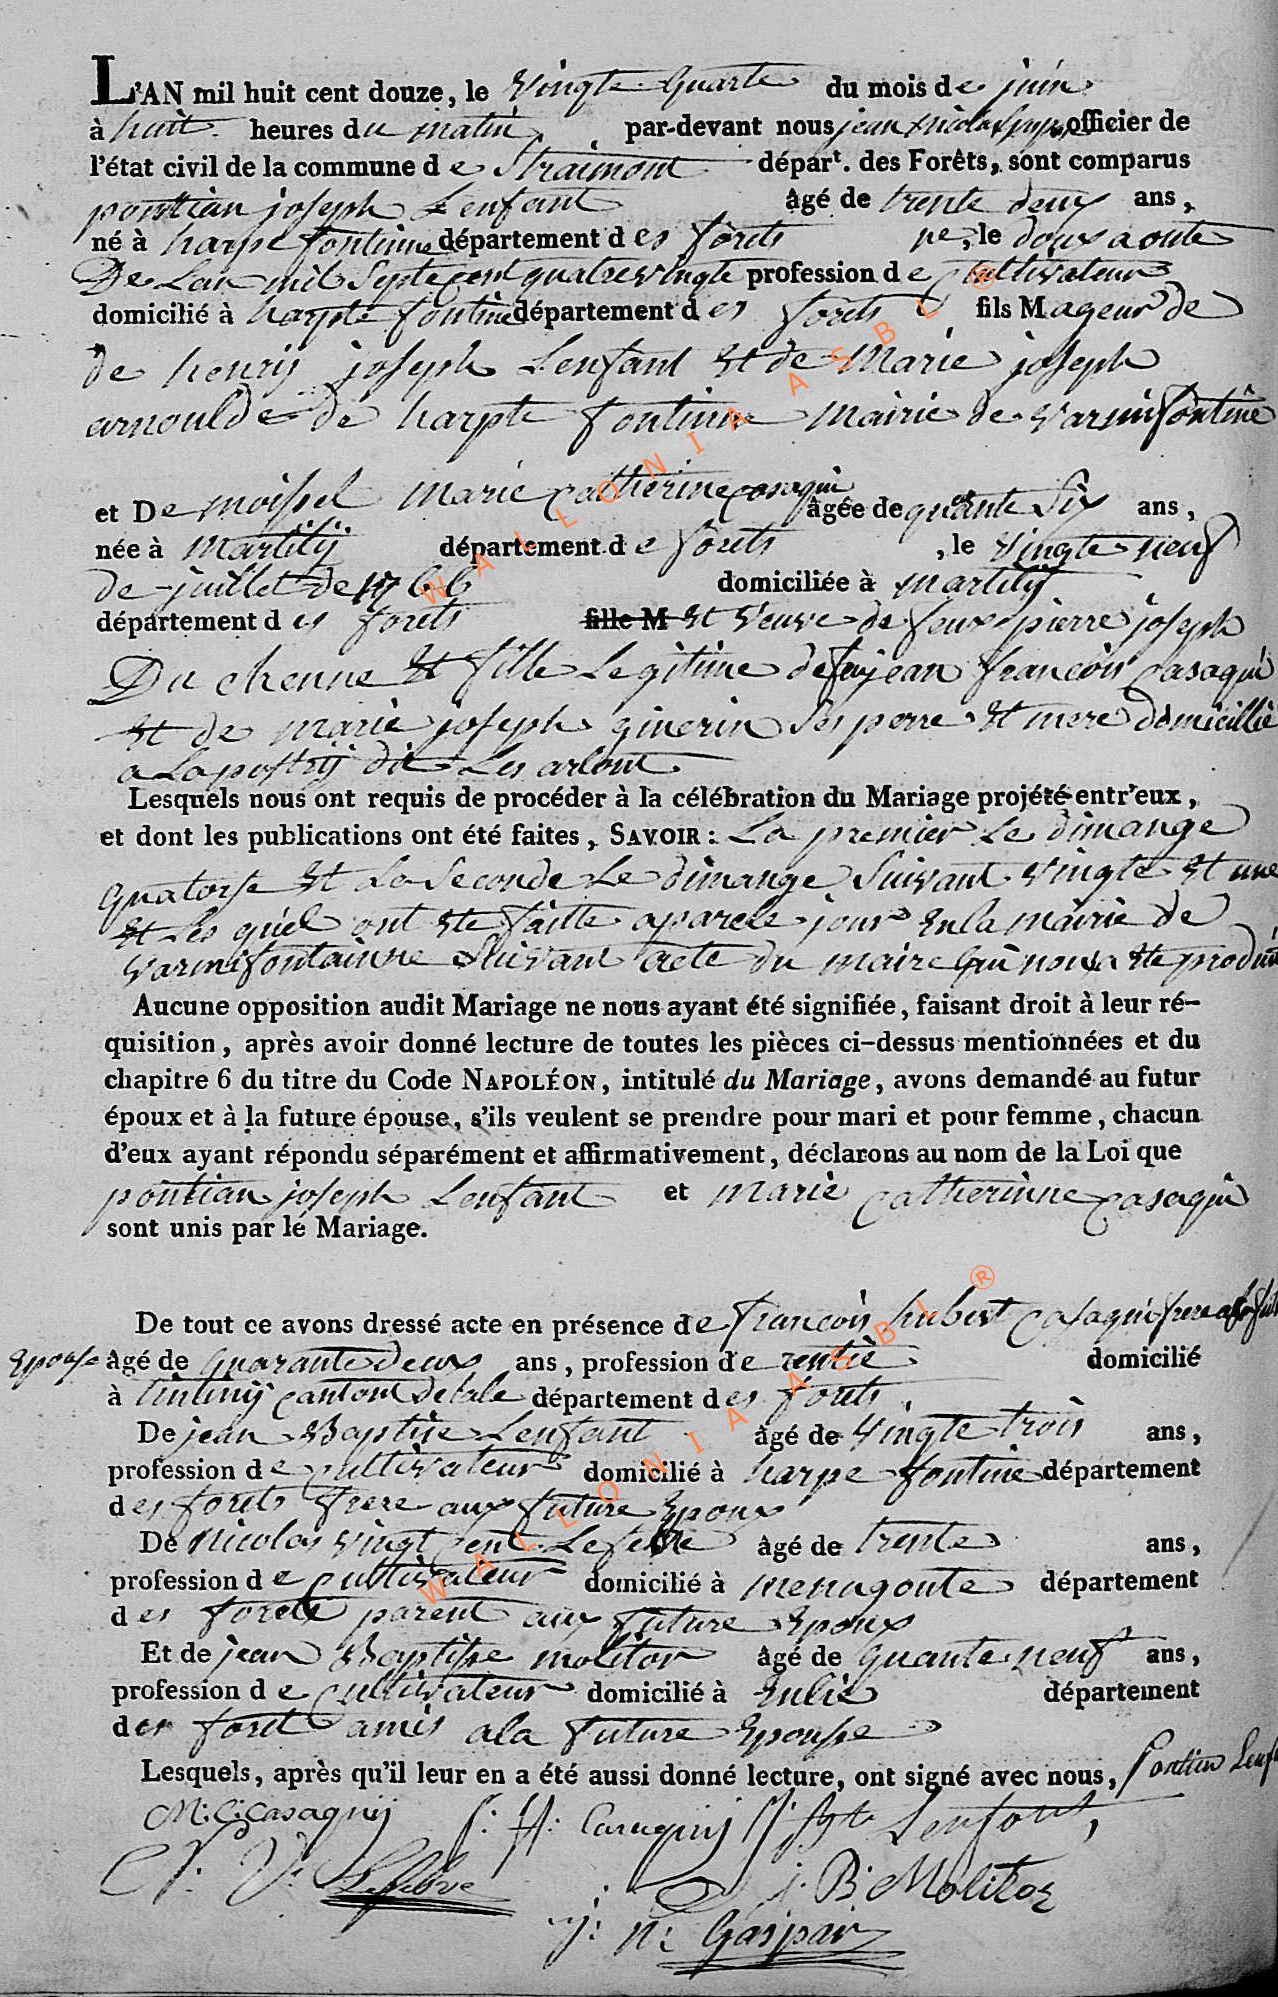 L'AN mil huit cent douze, le vingte quarte du mois de juin
à huit heures du matin, par-devant nous jean nicolas officier de
l'état civil de la commune de Straimont départ. des Forêts, sont comparus
pontian joseph Lenfant âgé de trente deux ans,
né à harpe fontinne département des forets né, le doux aoute
De Lan mil Septe cent quatre vingte profession de cultivateur
domicilié à harpte fontine département des forets fils Mageur de
de henrij joseph Lenfant Et de Marie joseph
arnould de harpte fontinne mairie de varmifontine
et Demoissel marie catherine casaqui âgée de quante Six ans,
née à Martilij département de forets, le vingte neuf
de juillet de 1766 domiciliée à martilij
département des forets fille M Et veuve de feux pierre joseph
Du chenne Et fille Legitime de feu jean francois casaqui
Et de marie joseph ginerin Ses perre Et mere domicillie
a Lapostrij dit Les arlont
Lesquels nous ont requis de procéder à la célébration du Mariage projeté entr'eux,
et dont les publications ont été faites, SAVOIR : La premier Le dimange
quatorse Et La Seconde Le dimange Suivant vingte Et une
Et Les quel ont Ete faitte a parele jour En la mairie de
varmifontainne Suivant acte du maire qui nous a Ete produit
Aucune opposition audit Mariage ne nous ayant été signifiée, faisant droit à leur ré-
quisition, après avoir donné lecture de toutes les pièces ci-dessus mentionnées et du
chapitre 6 du titre du Code NAPOLÉON, intitulé du Mariage, avons demandé au futur
époux et à la future épouse, s'ils veulent se prendre pour mari et pour femme, chacun
d'eux ayant répondu séparément et affirmativement, déclarons au nom de la Loi que
pontian joseph Lenfant et marie catherinne casaqui
sont unis par le Mariage.
De tout ce avons dressé acte en présence de francois hubert casaqui frere a la fut
Epouse âgé de quarante deux ans, profession de rentie domicilié
à tintinij canton detale département des forets
De jean Baptise Lenfant âgé de vingte trois ans,
profession de cultivateur domicilié à harpe fontine département
des forets frere aux future Epoux
De Nicolas vingt cent Lefebre âgé de trente ans,
profession de cultivateur domicilié à menugoute département
des forets parent aux future Epoux
Et de jean Baptisse molitor âgé de quante neuf ans,
profession de cultivateur domicilié à Enlie département
des foret amis a la future Epousse
Lesquels, après qu'il leur en a été aussi donné lecture, ont signé avec nous, Pontien Lenf
M: C: Casaquij f: H: Casaquij J: bte Lenfant,
N: V: Lefebvre j: B: Molitor
j: n: Gaspar
WALLONIA ASBL ®
WALLONIA ASBL ®